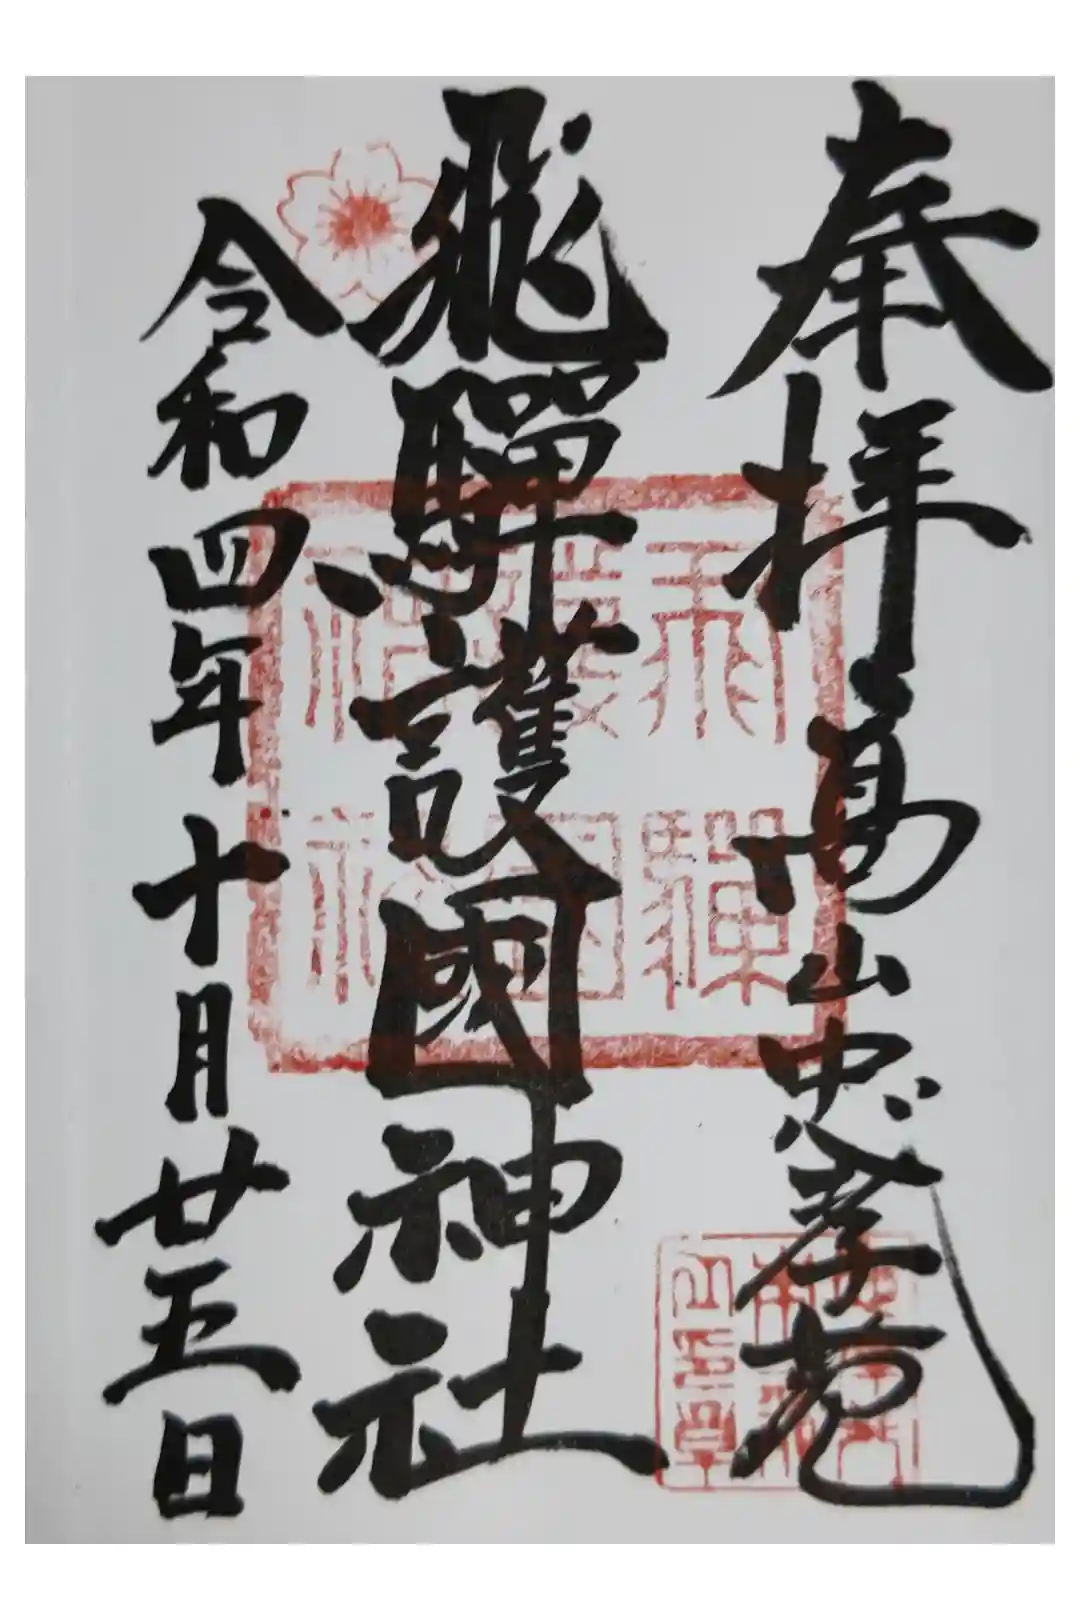 奉拝 高山忠孝苑
飛騨護國神社
令和四年十月廿五日
飛騨護国神社